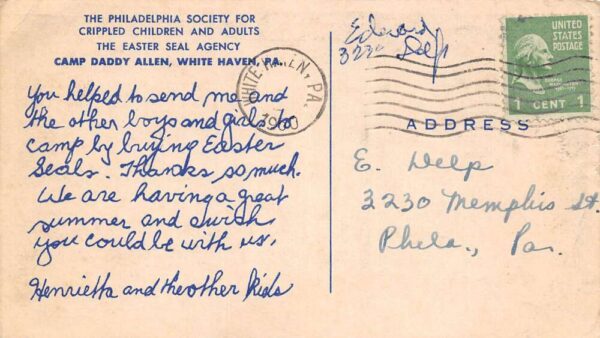 THE PHILADELPHIA SOCIETY FOR
CRIPPLED CHILDREN AND ADULTS
THE EASTER SEAL AGENCY
CAMP DADDY ALLEN, WHITE HAVEN, PA.
You helped to send me and
the other boys and girls to
camp by buying Easter
Seals. Thanks so much.
We are having a great
summer and I wish
you could be with us.
Henrietta and the other kids
WHITE HAVEN, PA.
1960
Edward
3230 Delp
UNITED
STATES
POSTAGE
1 CENT 1
ADDRESS
E. Delp
3230 Memphis St.
Phela., Pa.